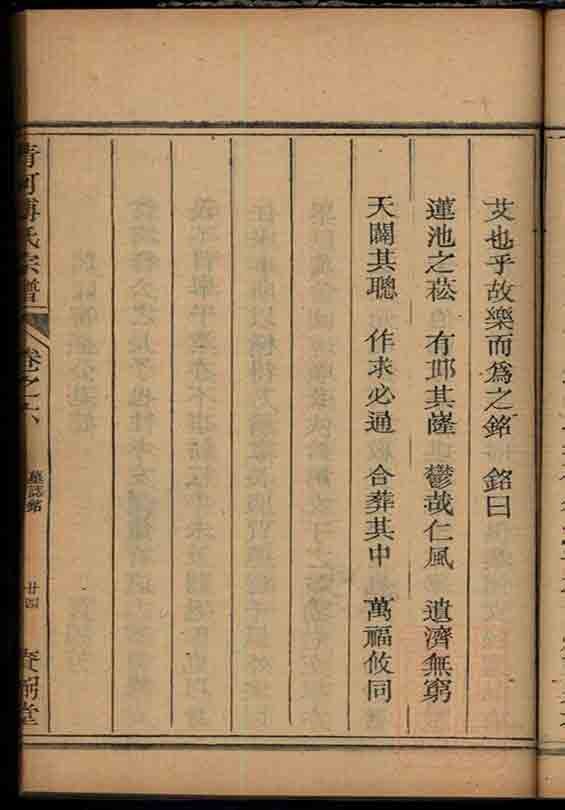 艾也乎故樂而爲之銘 銘曰
蓮池之菘 有邙其窿 鬱哉仁風 遺濟無窮
天闢其聰 作求必通 合葬其中 萬福攸同
清河傅氏宗譜 卷之六 墓誌銘 廿四 堂